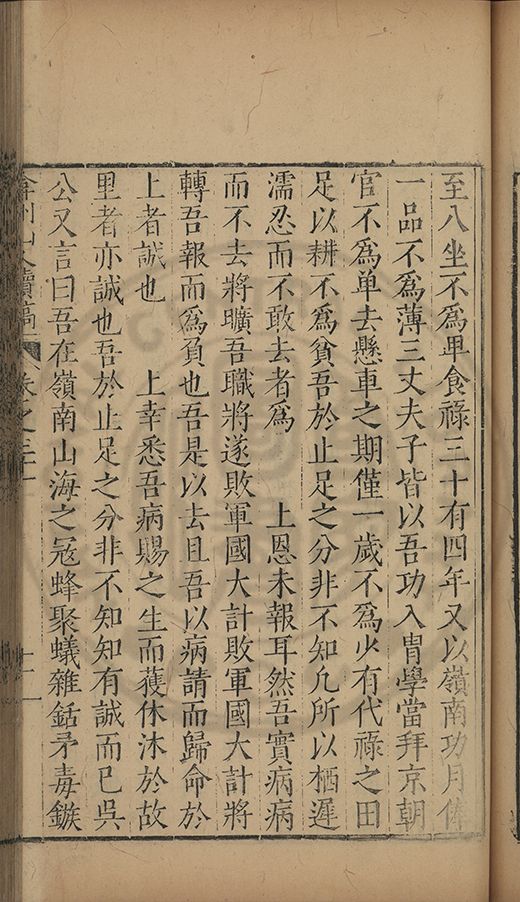 至八坐不爲卑食祿三十有四年又以嶺南功月俸
一品不爲薄三丈夫子皆以吾功入胄學當拜京朝
官不爲单去懸車之期僅一歲不爲少有代祿之田
足以耕不爲貧吾於止足之分非不知凢所以栖遲
濡忍而不敢去者爲　上恩未報耳然吾實病病
而不去將曠吾職將遂敗軍國大計敗軍國大計將
轉吾報而爲負也吾是以去且吾以病請而歸命於
上者誠也　上幸悉吾病賜之生而獲休沐於故
里者亦誠也吾於止足之分非不知知有誠而已吳
公又言曰吾在嶺南山海之冦蜂聚蟻雜銛矛毒鏃
弇州山人續稿 卷之三十 十一